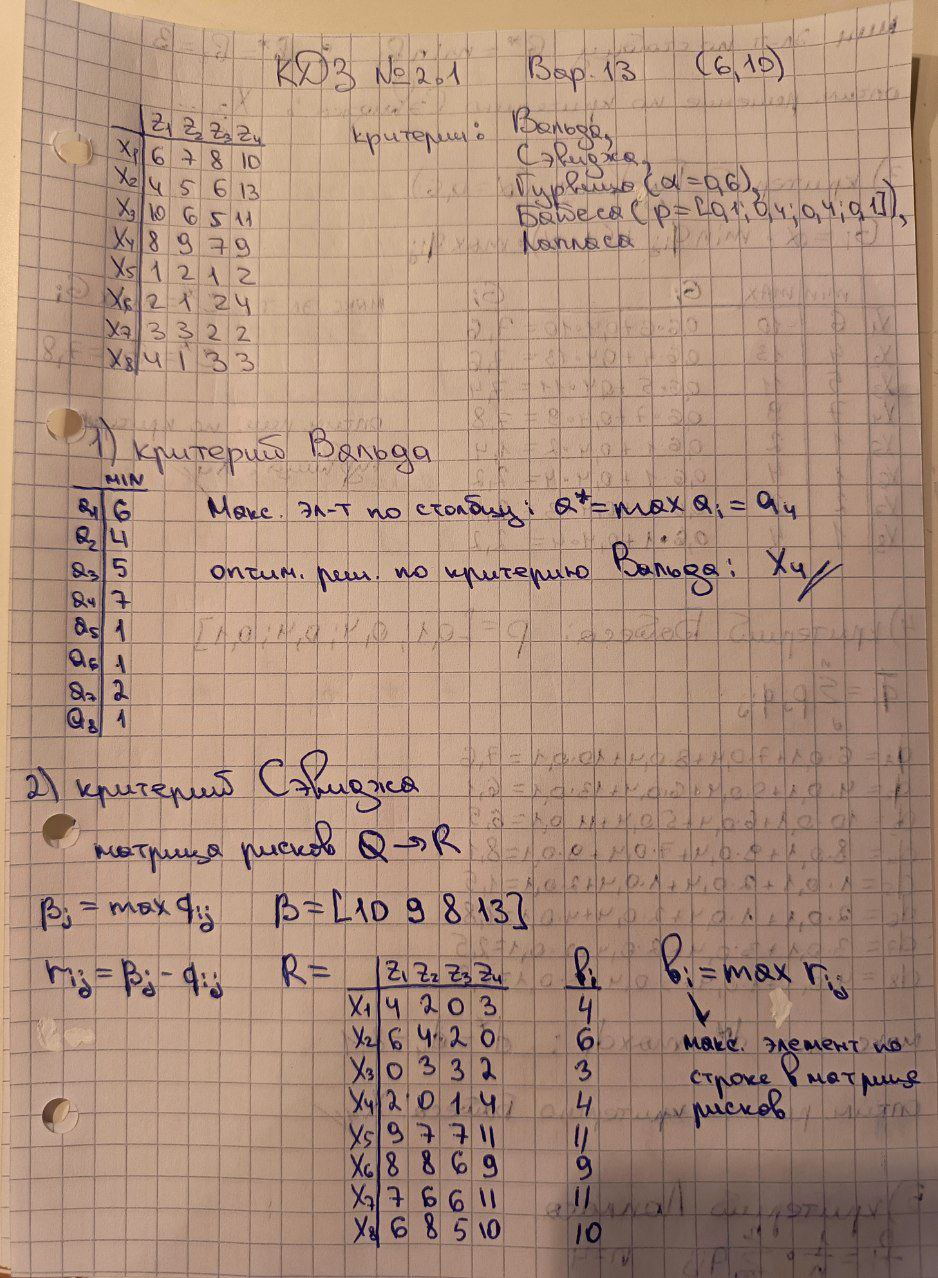 КДЗ №2.1 Вар. 13 (6,10)
Z1 Z2 Z3 Z4
X1 6 7 8 10
X2 4 5 6 13
X3 10 6 5 11
X4 8 9 7 9
X5 1 2 1 2
X6 2 1 2 4
X7 3 3 2 2
X8 4 1 3 3
критерии: Вальда,
Сэвиджа,
Гурвица (α=0,6),
Байеса (p=[0,1; 0,4; 0,4; 0,1]),
Лапласа
1) критерий Вальда
MIN
a1 6
a2 4
a3 5
a4 7
a5 1
a6 1
a7 2
a8 1
Макс. эл-т по столбцу: a*=max ai = a4
оптим. реш. по критерию Вальда: X4
2) критерий Сэвиджа
матрица рисков Q→R
βj = max qij β=[10 9 8 13]
rij = βj - qij R=
Z1 Z2 Z3 Z4 bi
X1 4 2 0 3 4
X2 6 4 2 0 6
X3 0 3 3 2 3
X4 2 0 1 4 4
X5 9 7 7 11 11
X6 8 8 6 9 9
X7 7 6 6 11 11
X8 6 8 5 10 10
bi = max rij
макс. элемент по
строке в матрице
рисков